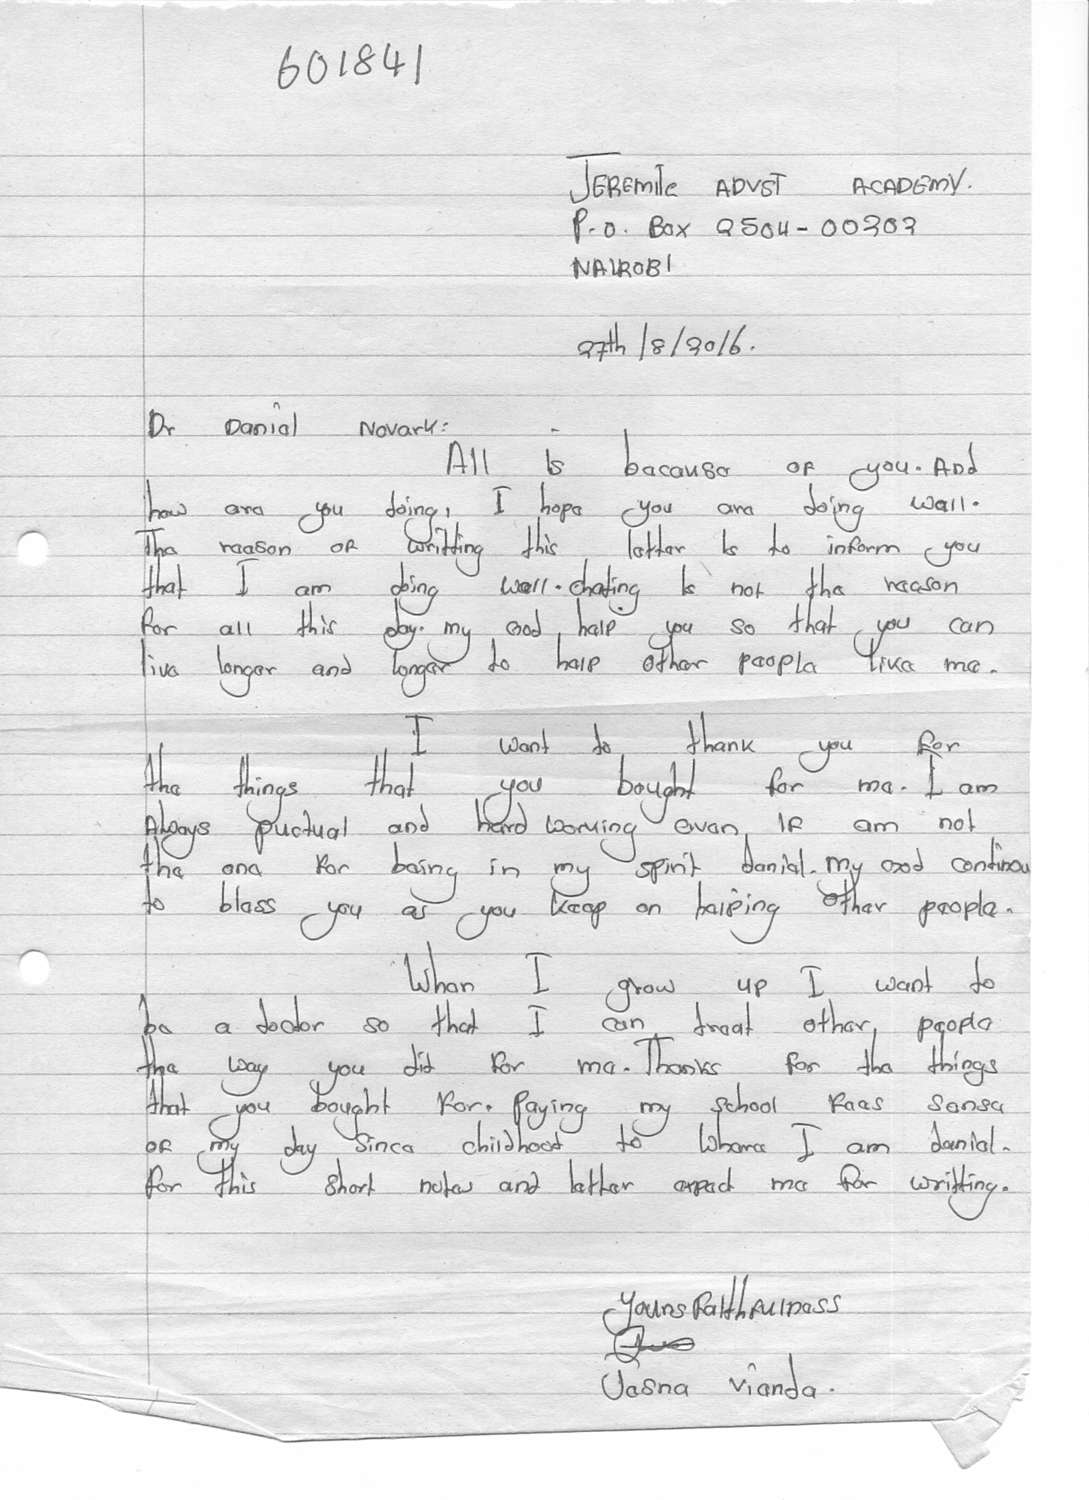 601841
JEREMITE ADVST ACADEMY.
P.O. BOX 2504-00202
NAIROBI
27th/8/2016.
Dr Danial Novark:
All is because of you. And
how are you doing, I hope you are doing well.
The reason of writting this letter is to inform you
that I am doing well. chating is not the reason
for all this day. my God help you so that you can
live longer and longer to help other people like me.
I want to thank you for
the things that you bought for me. I am
Always puctual and hard working even if am not
the one for being in my spirit danial. My God continou
to bless you as you keep on helping other people.
When I grow up I want to
be a doctor so that I can treat other people
the way you did for me. Thanks for the things
that you bought for. Paying my school fees sense
of my day since childhood to where I am danial.
For this short notes and letter expect me for writting.
Yours Faithfulness
Vianda.